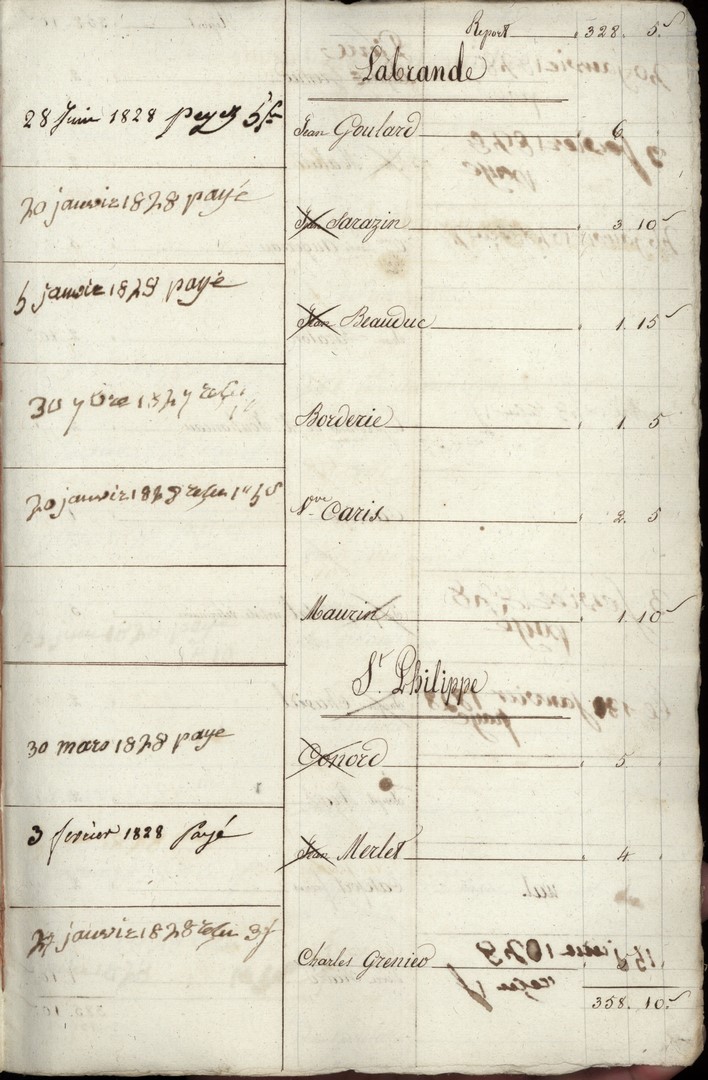 Report 328. 5.s
Labrande
28 Juin 1828 payez 5f
Jean Goulard 6.
20 janvie 1828 payé
Jean Sarazin 3. 10s
5 janvie 1828 payé
Jean Beauduc 1. 15s
30 7bre 1827 resu
Borderie 1. 5
20 janvie 1828 resu 1" 5s
Vve Caris 2. 5
Maurin 1. 10s
St. Philippe
30 mars 1828 paye
Conord 5.
3 fevrier 1828 Payé
Jean Merlet 4
janvie 1828 resu 3f
Charles Grenico
358. 10.s